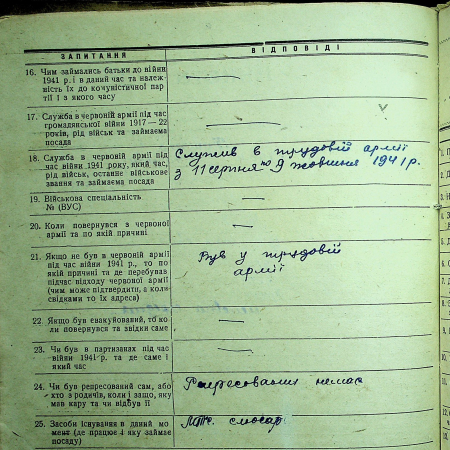 ЗАПИТАННЯ
ВІДПОВІДІ
16. Чим займались батьки до війни
1941 р. і в даний час та належ-
ність їх до комуністичної пар-
тії і з якого часу
—
17. Служба в червоній армії під час
громадянської війни 1917—22
років, рід військ та займаєма
посада
—
18. Служба в червоній армії під
час війни 1941 року, який час,
рід військ, останнє військове
звання та займаєма посада
Служив в трудовій армії
з 11 серпня по 9 жовтня 1941 р.
19. Військова спеціальність
№ (ВУС)
—
20. Коли повернувся з червоної
армії та по якій причині
—
21. Якщо не був в червоній армії
під час війни 1941 р., то по
якій причині та де перебував
підчас відходу червоної армії
(чим може підтвердити, а коли
свідками то їх адреса)
Був у трудовій
армії
22. Якщо був евакуйований, то ко-
ли повернувся та звідки саме
—
23. Чи був в партизанах під час
війни 1941 р. та де саме і
який час
—
24. Чи був репресований сам, або
хто з родичів, коли і защо, яку
мав кару та чи відбув її
Репресованих немає
25. Засоби існування в даний мо-
мент (де працює і яку займає
посаду)
МТС. слюсар